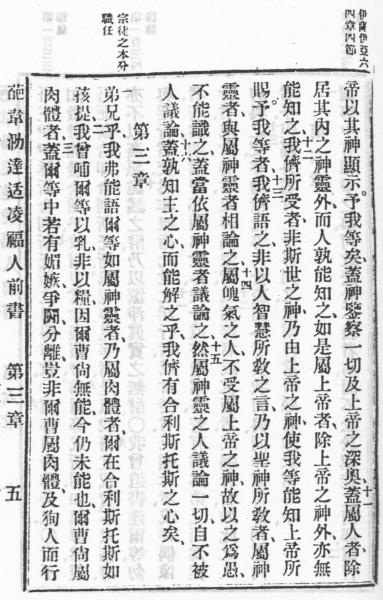 伊薩伊亞六
四章四節
帝以其神顯示予我等矣、蓋神鑒察一切及上帝之深奧、十一蓋屬人者除
居其內之神靈外、而人孰能知之、如是屬上帝者、除上帝之神外、亦無
能知之、十二我儕所受者、非斯世之神、乃由上帝之神、使我等能知上帝所
賜予我等者、十三我儕語之、非以人智慧所敎之言、乃以聖神所敎者、屬神
靈者與屬神靈者相論之、十四屬魄氣之人、不受屬上帝之神、故以之爲愚、
不能識之、蓋當依屬神靈者議論之、十五然屬神靈之人議論一切、自不被
人議論、十六蓋孰知主之心而能解之乎、我儕有合利斯托斯之心矣、
第三章
宗徒之本分
職任
一弟兄乎、我弗能語爾等如屬神靈者、乃屬肉體者、爾在合利斯托斯如
孩提、二我曾哺爾等以乳、非以糧、因爾曹尙無能、今仍未能也、爾曹尙屬
肉體者、三蓋爾等中若有媢嫉、爭鬪、分離、豈非爾曹屬肉體、及狥人而行
葩韋泐達适凌福人前書 第三章 五